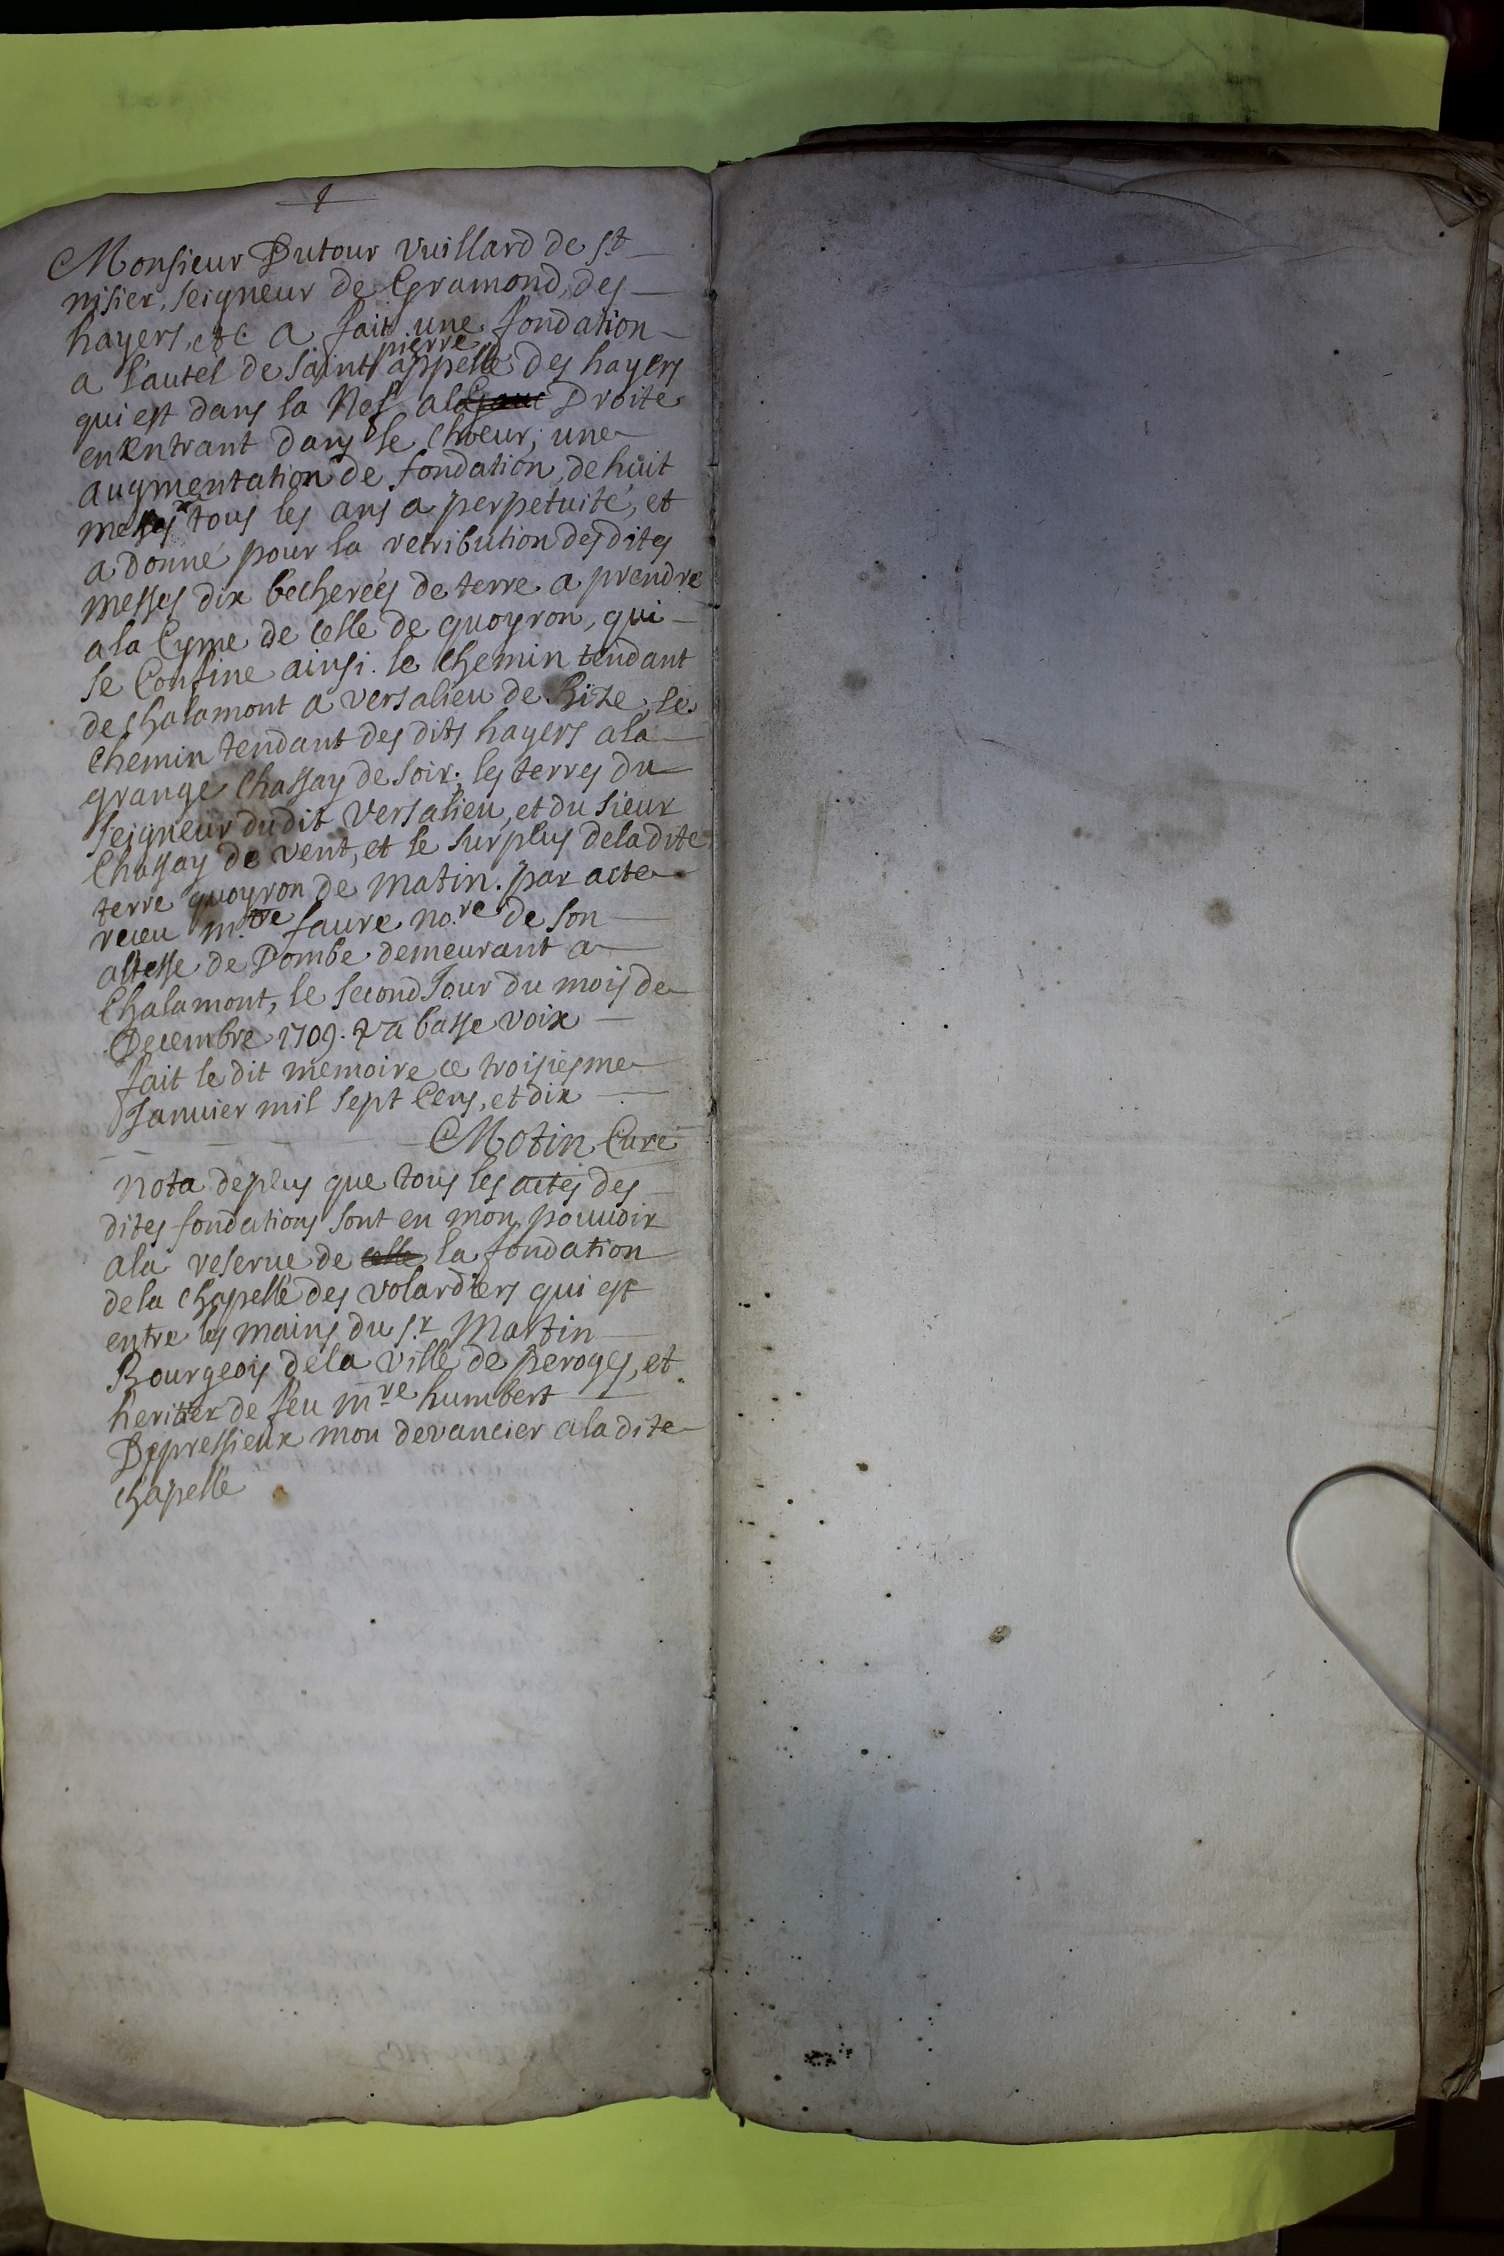 Monsieur Dutour vuillard de st
nisier, seigneur de Gramond, des
hayers, etc a fait une fondation
a l'autel de saint pierre appellé des hayers
qui est dans la Nef a la gauc Droite
en Entrant dans le Choeur, une
augmentation de fondation, de huit
messes * tous les ans a perpetuité, et
a donné pour la retribution des dites
messes dix becherées de terre a prendre
a la Cyme de celle de quoyron, qui
se Confine ainsi. le chemin tendant
de chalamont a versalieu de Bize, le
chemin tendant des dits hayers a la
grange Chassay de soir; les terres du
seigneur dudit versalieu, et du sieur
Chassay de vent, et le surplus de la dite
terre quoyron de matin. par acte
receu m.tre faure no.re de son
altesse de Dombe demeurant a
Chalamont, le second Jour du mois de
Decembre 1709. * a basse voix
fait le dit memoire ce troisiesme
Janvier mil sept Cens, et dix
Motin Curé
nota de plus que tous les actes des
dites fondations sont en mon pouuoir
a la reserue de celle la fondation
de la chapelle des volardiers qui est
entre les mains du s.r Martin
Bourgeois de la ville de peroges, et
heritier de feu m.re humbert
Depressieux mon devancier a la dite
chapelle